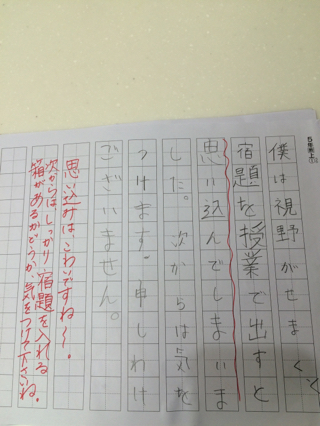 僕は視野がせまくて
宿題を授業で出すと
思い込んでしまいま
した。次からは気を
つけます。申しわけ
ございません。
思い込みは、こわいですね〜。
次からはしっかり、宿題を入れる
箱があるかどうか、気をつけて下さいね。